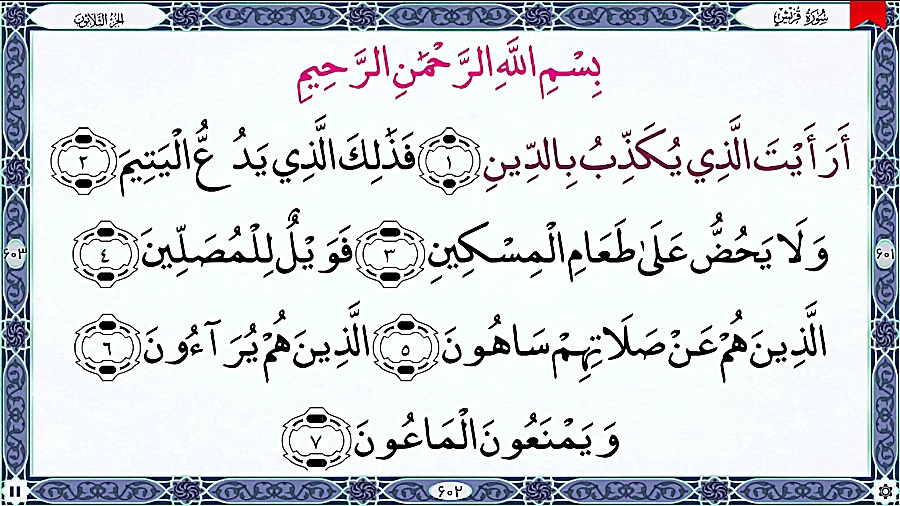 سُورَةُ قُرَيْشٍ
الجزء الثلاثون
بِسْمِ اللَّهِ الرَّحْمَٰنِ الرَّحِيمِ
أَرَأَيْتَ الَّذِي يُكَذِّبُ بِالدِّينِ ١ فَذَٰلِكَ الَّذِي يَدُعُّ الْيَتِيمَ ٢
وَلَا يَحُضُّ عَلَىٰ طَعَامِ الْمِسْكِينِ ٣ فَوَيْلٌ لِلْمُصَلِّينَ ٤
الَّذِينَ هُمْ عَنْ صَلَاتِهِمْ سَاهُونَ ٥ الَّذِينَ هُمْ يُرَآءُونَ ٦
وَيَمْنَعُونَ الْمَاعُونَ ٧
٦٠١
٦٠٣
٦٠٢